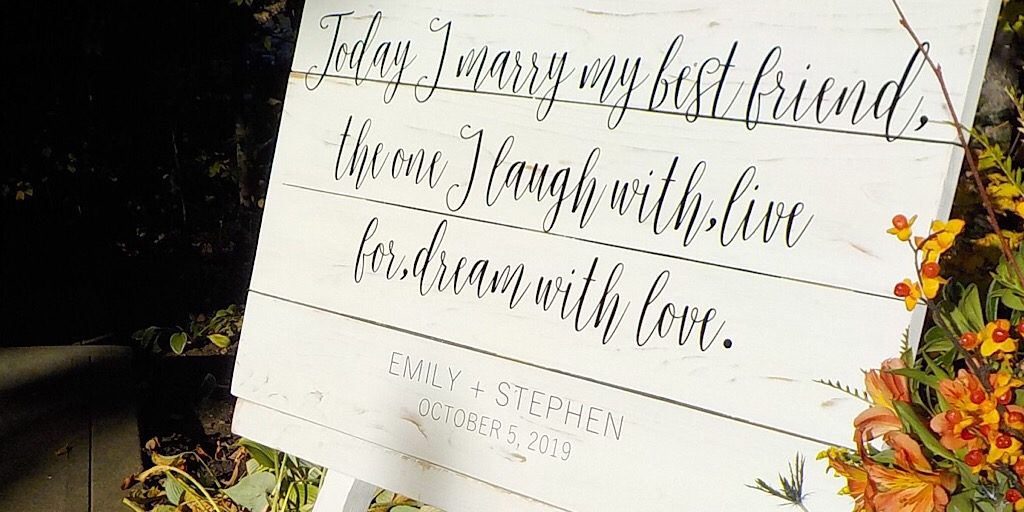 Today I marry my best friend,
the one I laugh with, live
for, dream with love.
EMILY + STEPHEN
OCTOBER 5, 2019